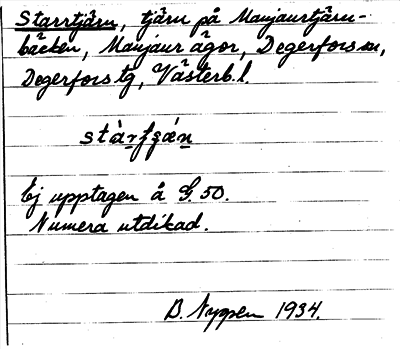 Starrtjärn, tjärn på Manjaurtjärn-
bäcken, Manjaur ägor, Degerfors sn,
Degerfors tg, Västerb. l.
stàrfʒæ̀n
Ej upptagen å G. 50.
Numera utdikad.
B. Nyppen 1934.